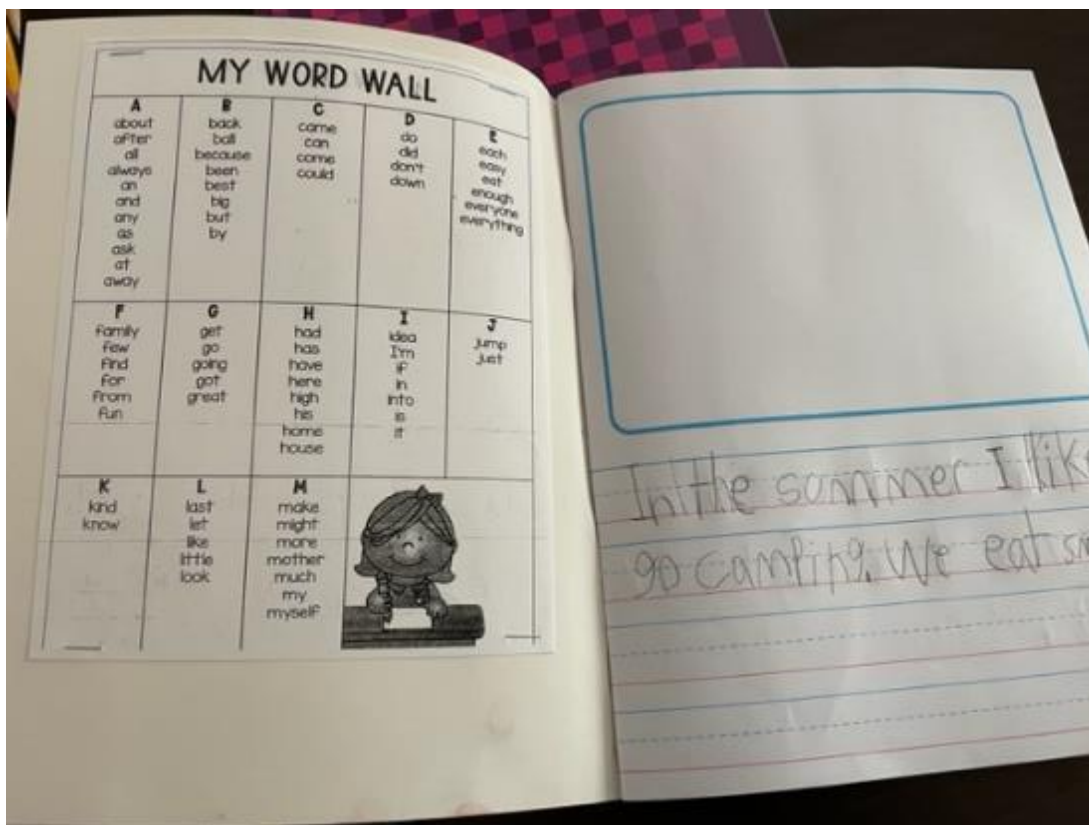 MY WORD WALL
A
about
after
all
always
an
and
any
as
ask
at
away
B
back
ball
because
been
best
big
but
by
C
came
can
come
could
D
do
did
don't
down
E
each
easy
eat
enough
everyone
everything
F
family
few
find
for
from
fun
G
get
go
going
got
great
H
had
has
have
here
high
his
home
house
I
idea
I'm
if
in
into
is
it
J
jump
just
K
kind
know
L
last
let
like
little
look
M
make
might
more
mother
much
my
myself
In the summer I lik
go camping. We eat